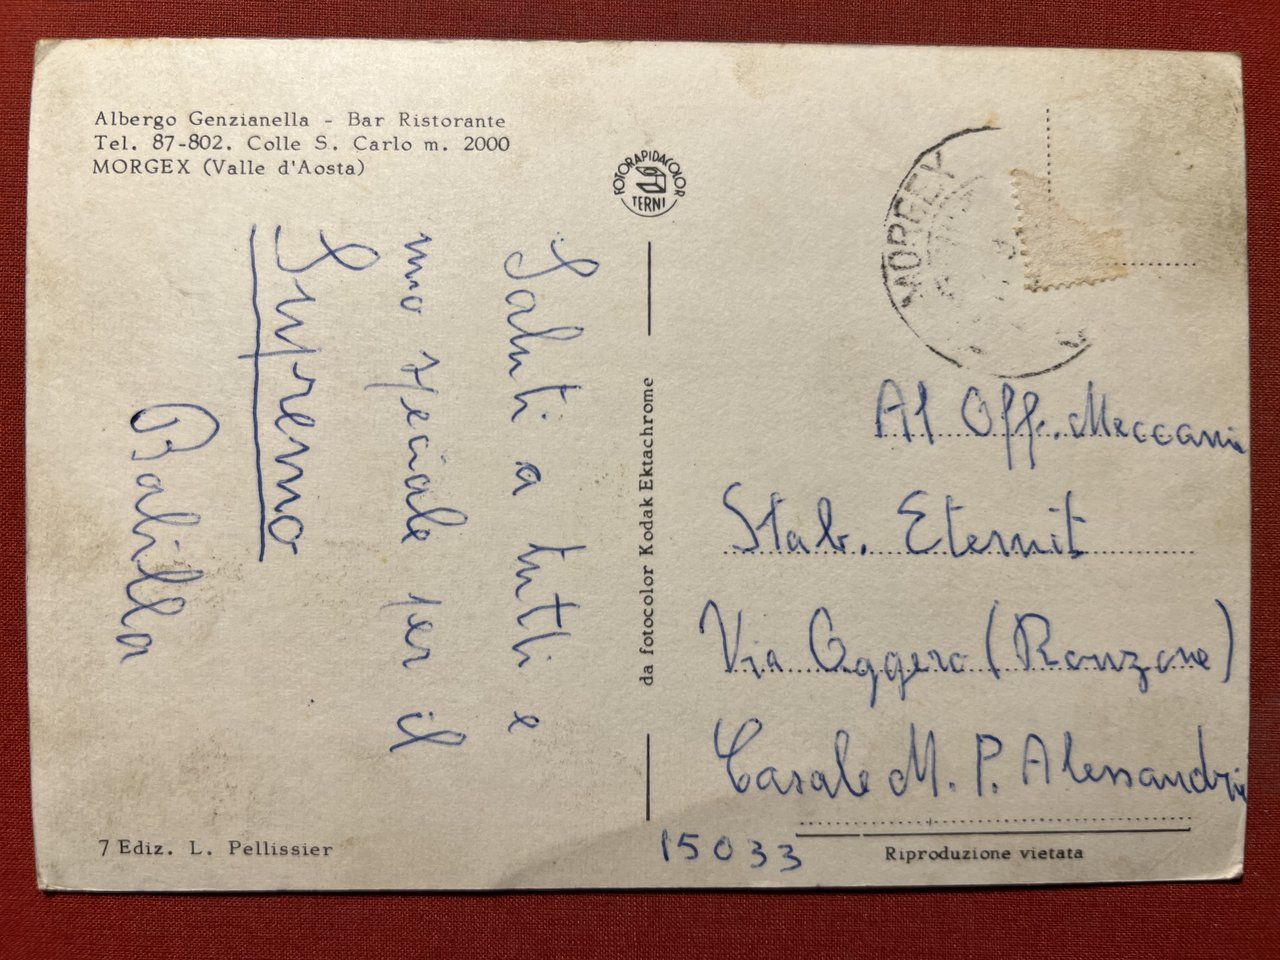 Albergo Genzianella - Bar Ristorante
Tel. 87-802. Colle S. Carlo m. 2000
MORGEX (Valle d'Aosta)
FOTORAPIDACOLOR
TERNI
MORGEX
Saluti a tutti e
uno speciale per il
Supremo
Balilla
da fotocolor Kodak Ektachrome
Al Off. Meccani
Stab. Eternit
Via Oggero (Ronzone)
Casale M. P. Alessandria
15033
7 Ediz. L. Pellissier
Riproduzione vietata